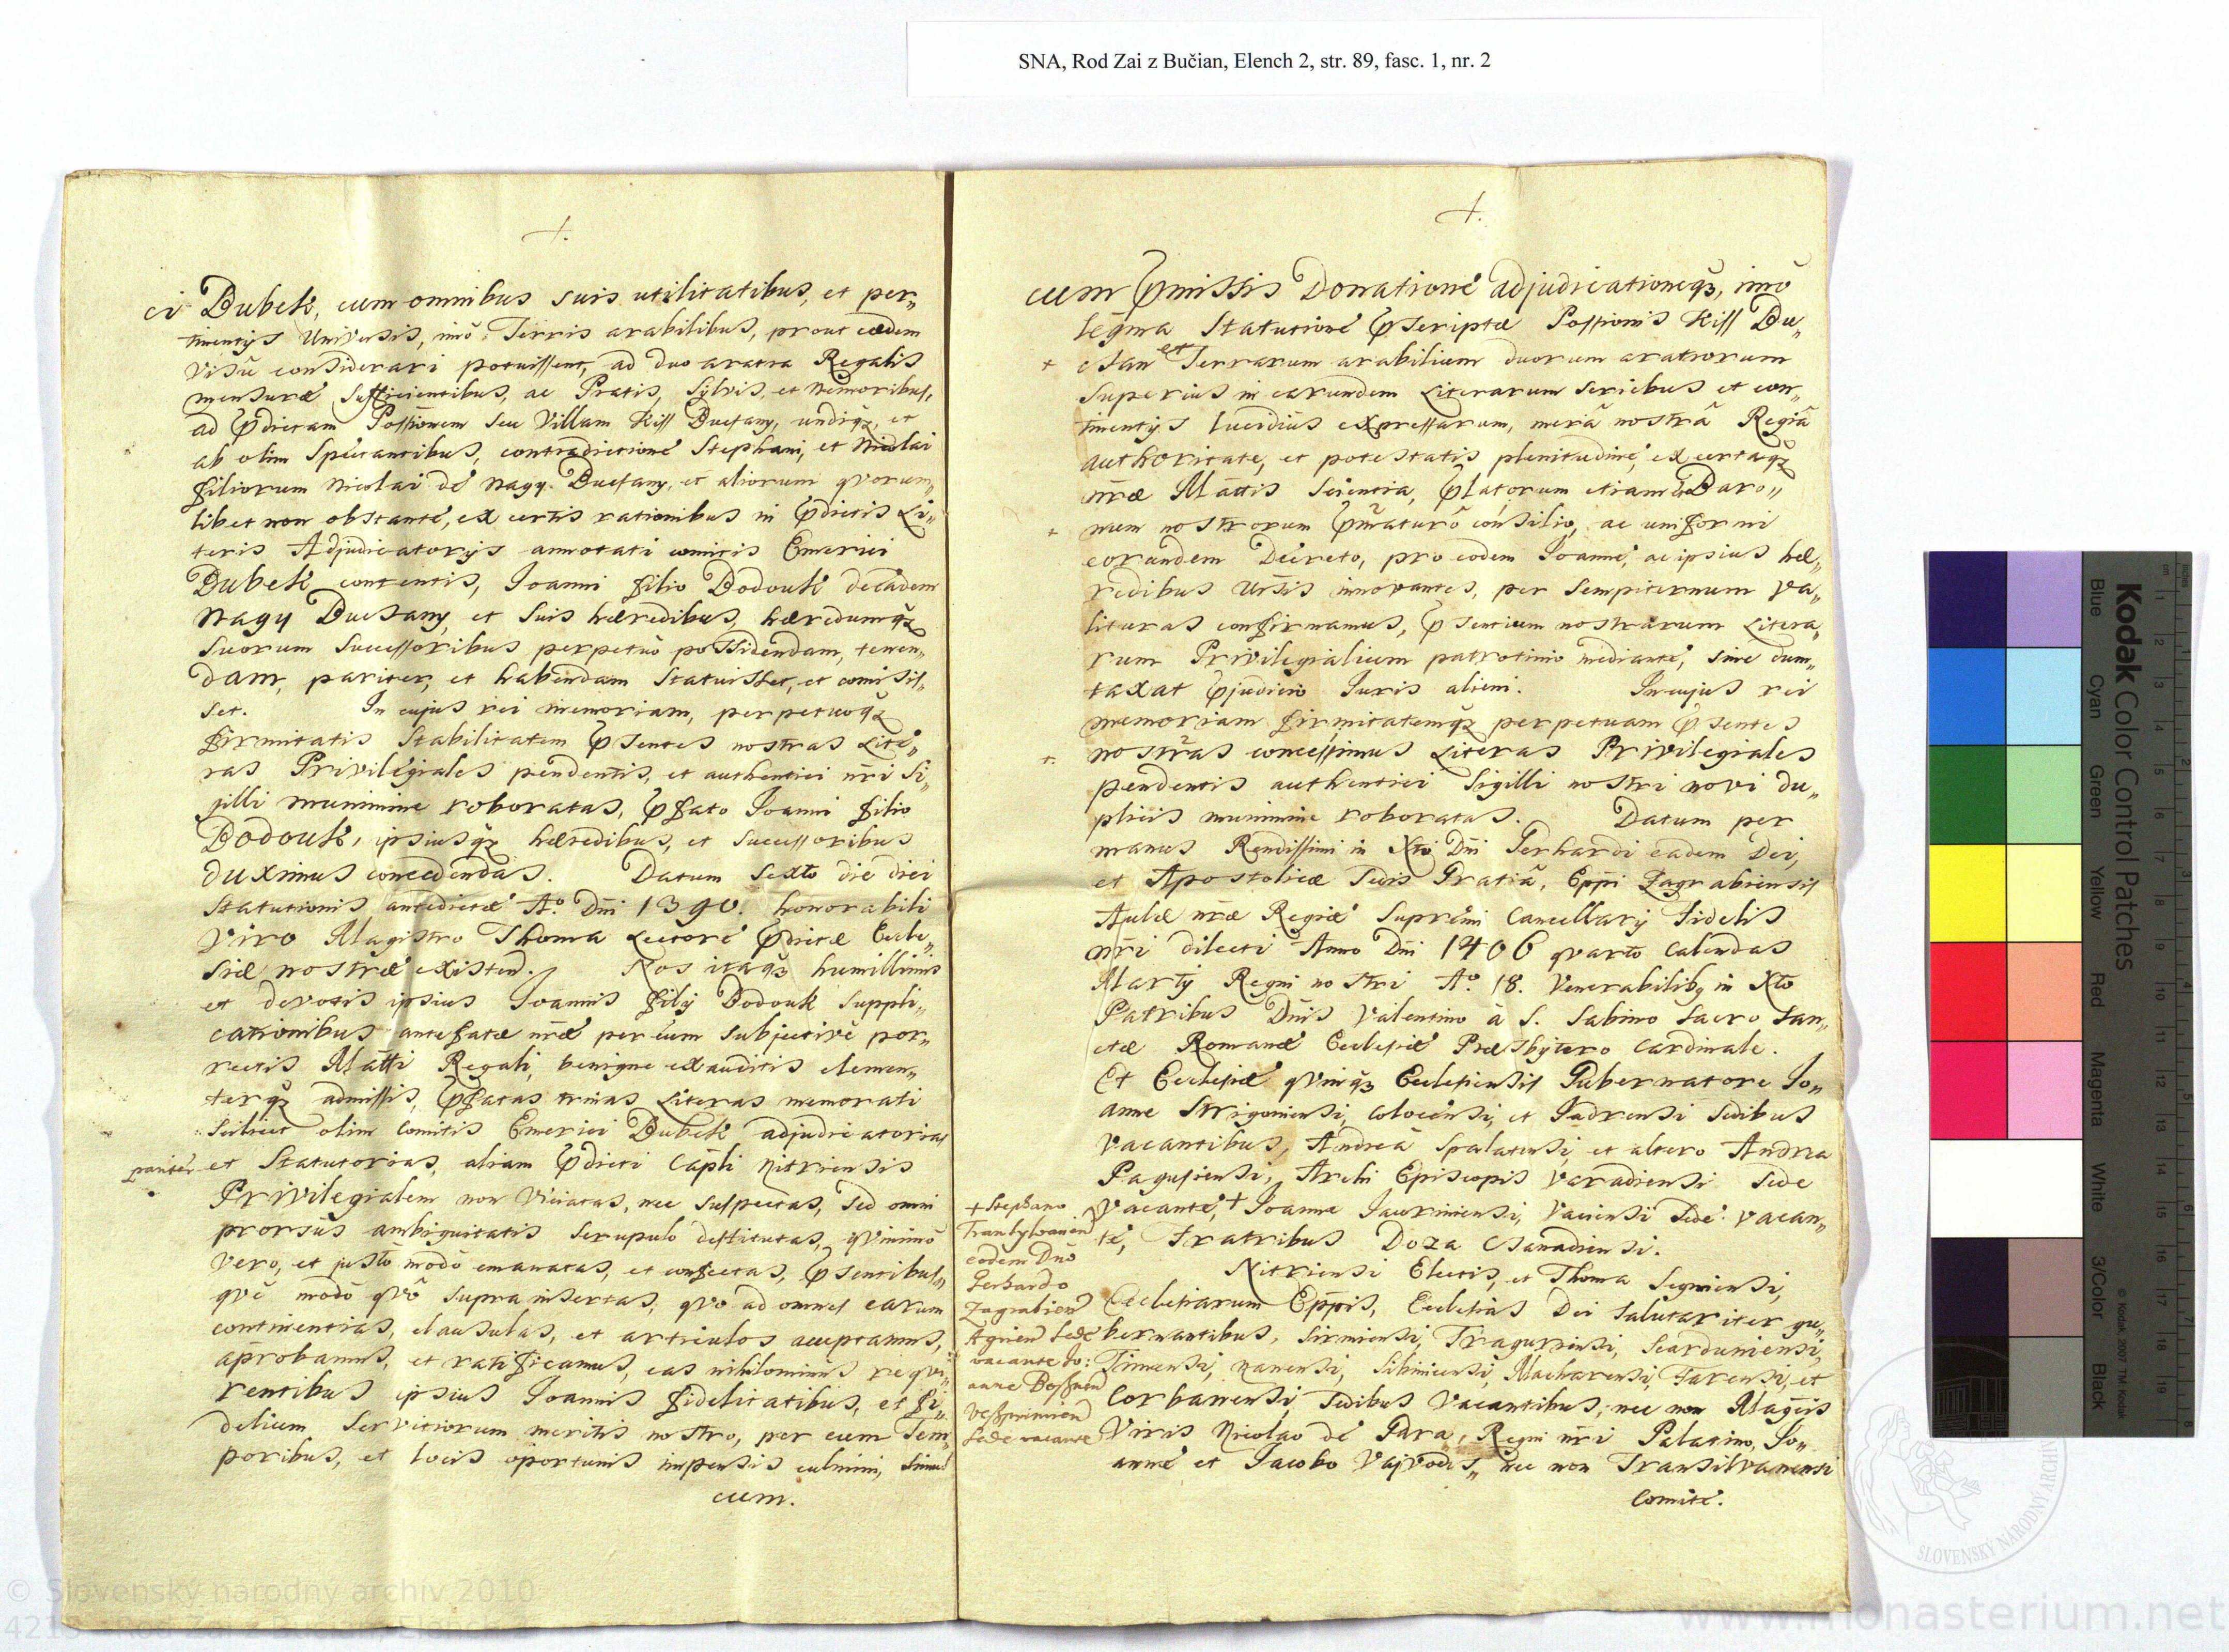 SNA, Rod Zai z Bučian, Elench 2, str. 89, fasc. 1, nr. 2
ci Bubek, cum omnibus suis utilitatibus, et per„
tinentijs Universis, imò Terris arabilibus, prout eædem
visu considerari potuissent, ad duo aratra Regalis
mensuræ sufficientibus, ac Pratis, Sylvis, et Nemoribus,
ad p̃dictam Possionem seu Villam Kiss Bucsany, undiq3, et
ab olim Spectantibus, contradictione Stephani, et Nicolai
filiorum Nicolai de Nagy Bucsany, et aliorum qvorum„
libet non obstante, ex certis rationibus in p̃dictis Li„
teris Adjudicatorijs annotati comitis Emerici
Bubek contentis, Joanni filio Bodouk de eadem
Nagy Bucsany, et suis hæredibus, hæredumq3
suorum successoribus perpetuò possidendam, tenen„
dam, pariter, et habendam statuisset, et comisis„
set. In cujus rei memoriam, perpetuoq3
firmitatis stabilitatem p̃sentes nostras Lite„
ras Privilegiales pendentis, et authentici nr̃i Si„
gilli munimine roboratas, p̃fato Joanni filio
Bodouk, ipsiusq3 hæredibus, et successoribus
duximus concedendas. Datum sexto die diei
Statutionis antedictæ Ao. Dñi 1390. honorabili
Viro Magistro Thoma Lectore p̃dictæ Eccle„
siæ nostræ existend. Nos itaq3 humillimis
et devotis ipsius Joannis filij Bodouk suppli„
cationibus antefatæ nr̃æ per eum subjective por„
rectis Mãtti Regali, benigne exauditis clemen„
terq3 admissis, p̃fatas trinas Literas memorati
scilicet olim Comitis Emerici Bubek adjudicatorias
pariter et Statutorias, aliam p̃dicti Capli Nitriensis
Privilegialem non viciatas, nec suspectas, sed omni
prorsus ambiguitatis scrupulo destitutas, qvinimò
vero, et justo modo emanatas, et confectas, p̃sentibus„
qve modò qvô supra insertas, qvo ad omnes earum
continentias, clausulas, et articulos acceptamus,
aprobamus, et ratificamus, eas nihilominus reqvi„
rentibus ipsius Joannis fidelitatibus, et fi„
delium servitiorum meritis nostro, per eum Tem„
poribus, et locis oportunis impensis culmini, simul
cum.
cum p̃missis Donatione adjudicationeq3, imò
legma Statutione p̃scriptæ Possionis Kiss Bu„
csan et Terrarum arabilium duorum aratrorum
superius in earundem Literarum seriebus et con„
tinentijs lucidius expressarum, merâ nostrâ Regiâ
authoritate, et potestatis plenitudine, ex certaq3
nr̃æ Mãttis scientia, p̃latorum etiam et Baro„
num nostrorum p̃maturo consilio, ac uniformi
eorundem Decreto, pro eodem Joanne, ac ipsius hæ„
redibus Ursis innovantes, per sempiternum va„
lituras confirmamus, p̃sentium nostrarum Litera„
rum Privilegialium patrocinio mediante, sine dum„
taxat p̃judicio Juris alieni. In cujus rei
memoriam firmitatemq3 perpetuam p̃sentes
nostras concessimus Literas Privilegiales
pendentis authentici Sigilli nostri novi du„
plicis munimine roboratas. Datum per
manus Rendissimi in Xto Dñi Gerhardi eadem Dei,
et Apostolicæ Sedis Gratiâ, Eppi Zagrabiensis
Aulæ nr̃æ Regiæ Supremi Cancellarij fidelis
nr̃i dilecti Anno Dñi 1406 qvarto Calendas
Martij Regni nostri Ao. 18. Venerabilib9 in Xto
Patribus Dñis Valentino à S. Sabino Sacro San„
ctæ Romanæ Ecclesiæ Præsbytero Cardinale.
Et Ecclesiæ qvinq3 Ecclesiensis Gubernatore Jo„
anne Strigoniensi, Colocensi, et Jadrensi Sedibus
vacantibus, Andreâ Spalatensi, et altero Andrea
Ragusiensi, Archi Episcopis Varadiensi Sede
vacante, + Joanne Jauriniensi, Vaciensi Sede vacan„
te, Fratribus Doza Csanadiensi.
Nitriensi Electis, et Thoma Segniensi,
Ecclesiarum Eppis, Ecclesias Dei salutariter gu„
bernantibus, Sirmiensi, Traguriensi, Scarduniensi,
Tinnensi, Nanensi, Sibinicensi, Macharensi, Farensi, et
Corbaniensi Sedibus Vacantibus, nec non Magcis
Viris Nicolao de Gara, Regni nr̃i Palatino, Jo„
anne et Jacobo Vajvodis, nec non Transilvanensi
Comite.
+ Stephano
Transylvanien
eodem Dño
Gerhardo
Zagrabien
Agrien Sede
vacante Jo:
anne Bosznen
Veszprimien
Sede vacante
Kodak Color Control Patches
Blue Cyan Green Yellow Red Magenta White 3/Color Black
© Kodak 2007 TM: Kodak
© Slovenský národný archív 2010
4213 - Rod Zai z Bučian, Elench 2
www.monasterium.net
SLOVENSKÝ NÁRODNÝ ARCHÍV